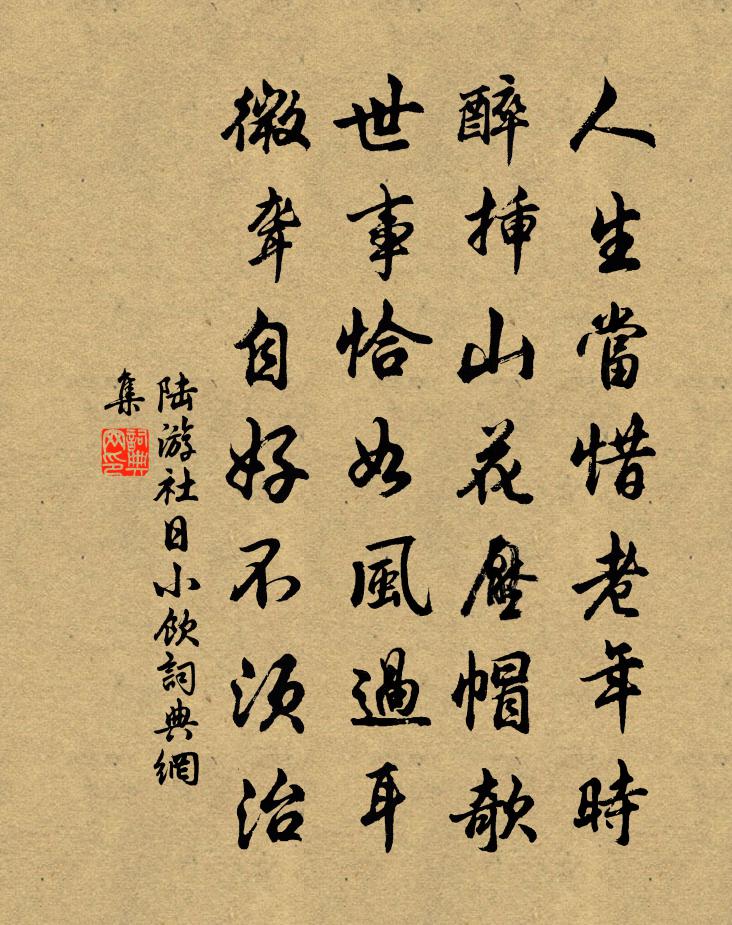 人生當惜老年時
醉插山花壓帽欹
世事恰如風過耳
微聾自好不須治
陆游社日小飲詞典網
集
詞典
网印